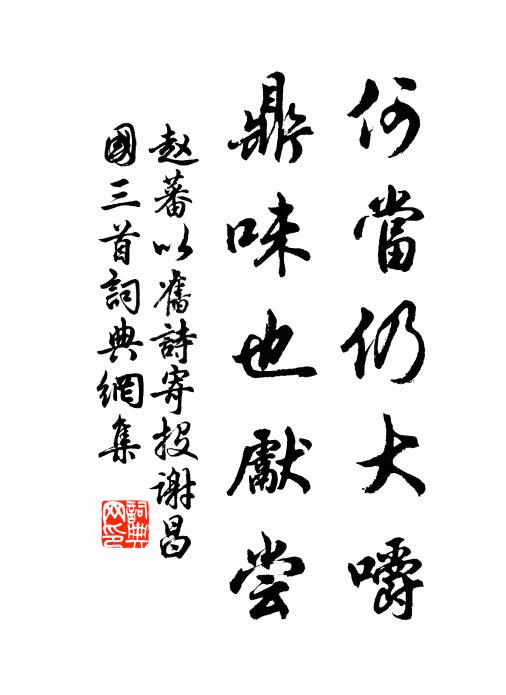 何當仍大嚼
鼎味也獻尝
赵蕃以舊詩寄投谢昌
國三首詞典網集
詞典
网印